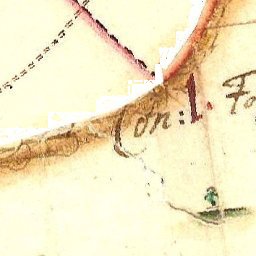 Con:l. Fo